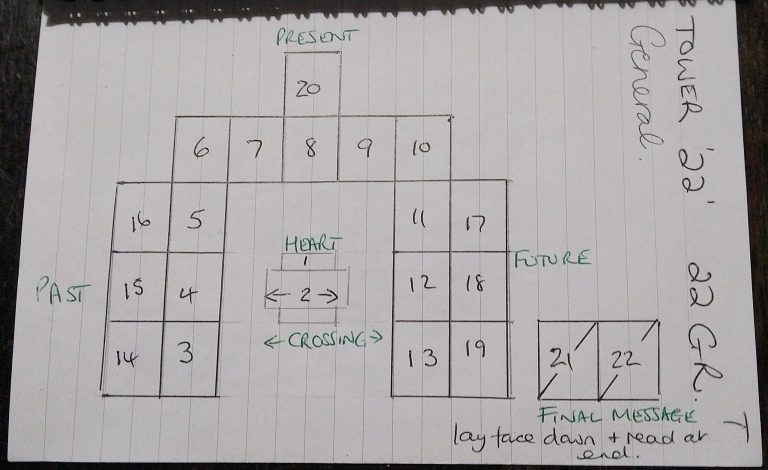 PRESENT
20
6 7 8 9 10
16 5 11 17
HEART
1
PAST 15 4 ← 2 → 12 18 FUTURE
← CROSSING →
14 3 13 19 21 22
FINAL MESSAGE
lay face down + read at
end.
TOWER '22' 22 GR. T
General.